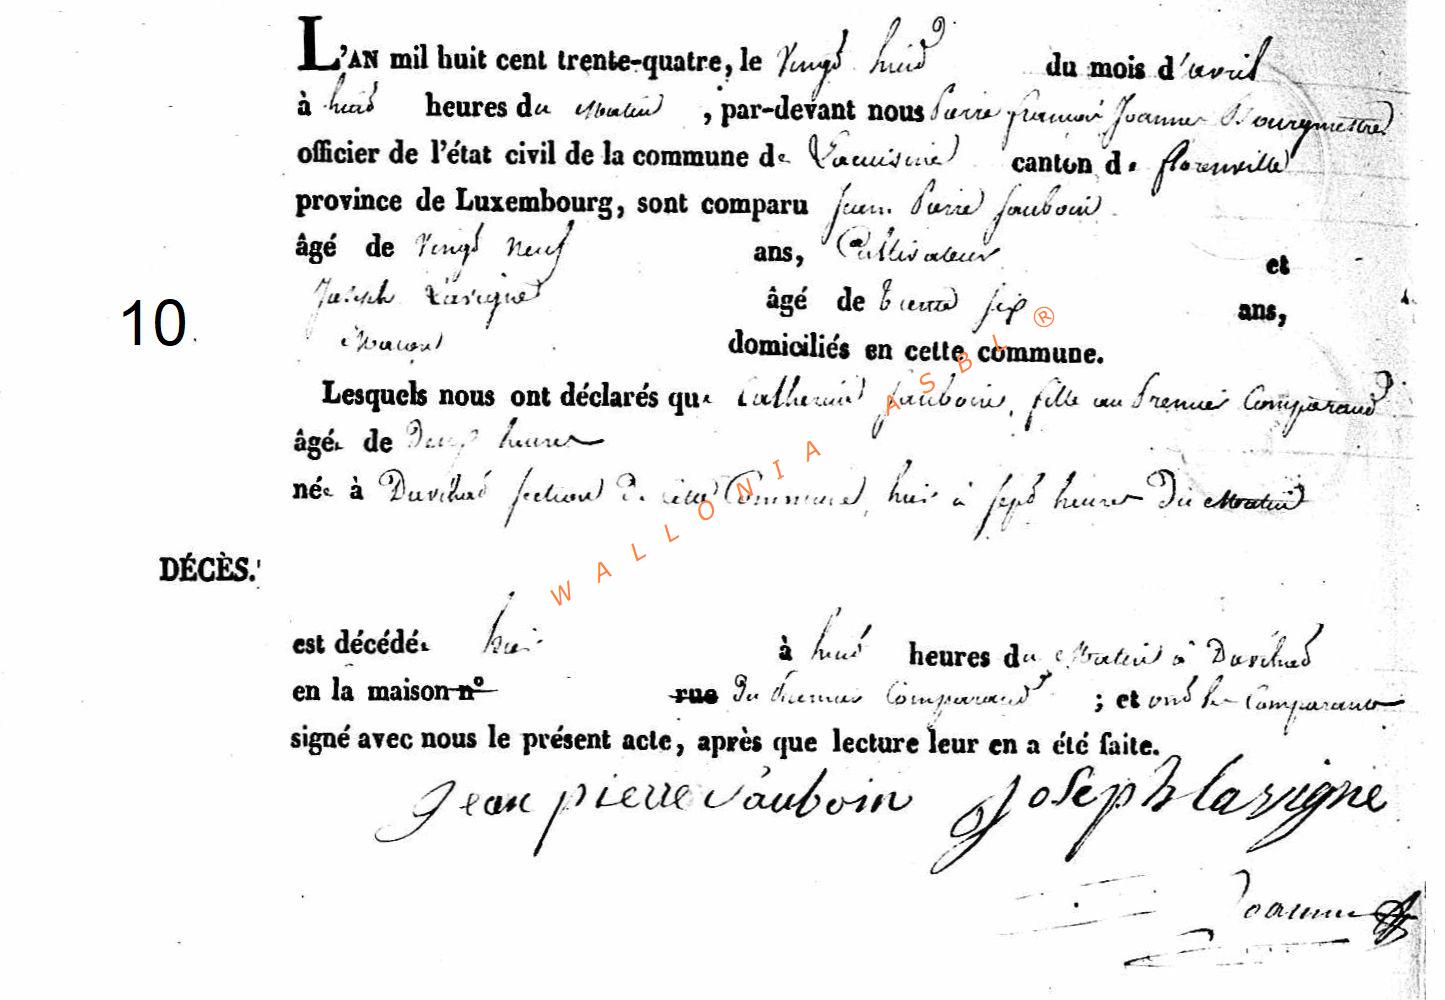 L'AN mil huit cent trente-quatre, le vingt huit du mois d'avril
à huit heures du Matin, par-devant nous Pierre françois Joannes Bourgmestre
officier de l'état civil de la commune de Lacuisine canton de florenville
province de Luxembourg, sont comparu Jean Pierre Sauboin
âgé de vingt neuf ans, Cultivateur et
Joseph Lavigne âgé de trente six ans,
10
Maçon domiciliés en cette commune.
Lesquels nous ont déclarés que Catherine Sauboin, fille au Premier Comparant
âgée de Deux heures
née à Duvihad section de cette Commune, hui à sept heures Du Matin
DÉCÈS.
est décédée hui à huit heures du Matin à Duvihad
en la maison n° rue Du Premier Comparant ; et ont les Comparants
signé avec nous le présent acte, après que lecture leur en a été faite.
Jean pierre Sauboin Joseph lavigne
Joannes
WALLONIA ASBL ®